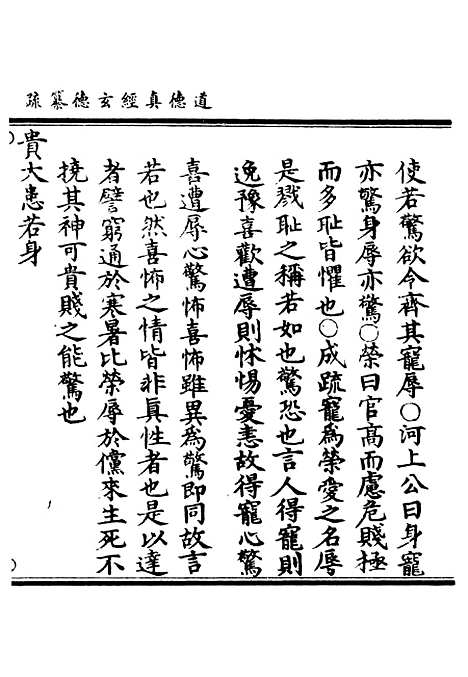 道德真經玄德纂疏
使若驚欲令齊其寵辱○河上公曰身寵
亦驚身辱亦驚○榮曰官高而慮危賤極
而多恥皆懼也○成疏寵為榮愛之名辱
是戮恥之稱若如也驚恐也言人得寵則
逸豫喜歡遭辱則怵惕憂恚故得寵心驚
喜遭辱心驚怖喜怖雖異為驚即同故言
若也然喜怖之情皆非真性者也是以達
者譬窮通於寒暑比榮辱於儻來生死不
撓其神可貴賤之能驚也
貴大患若身